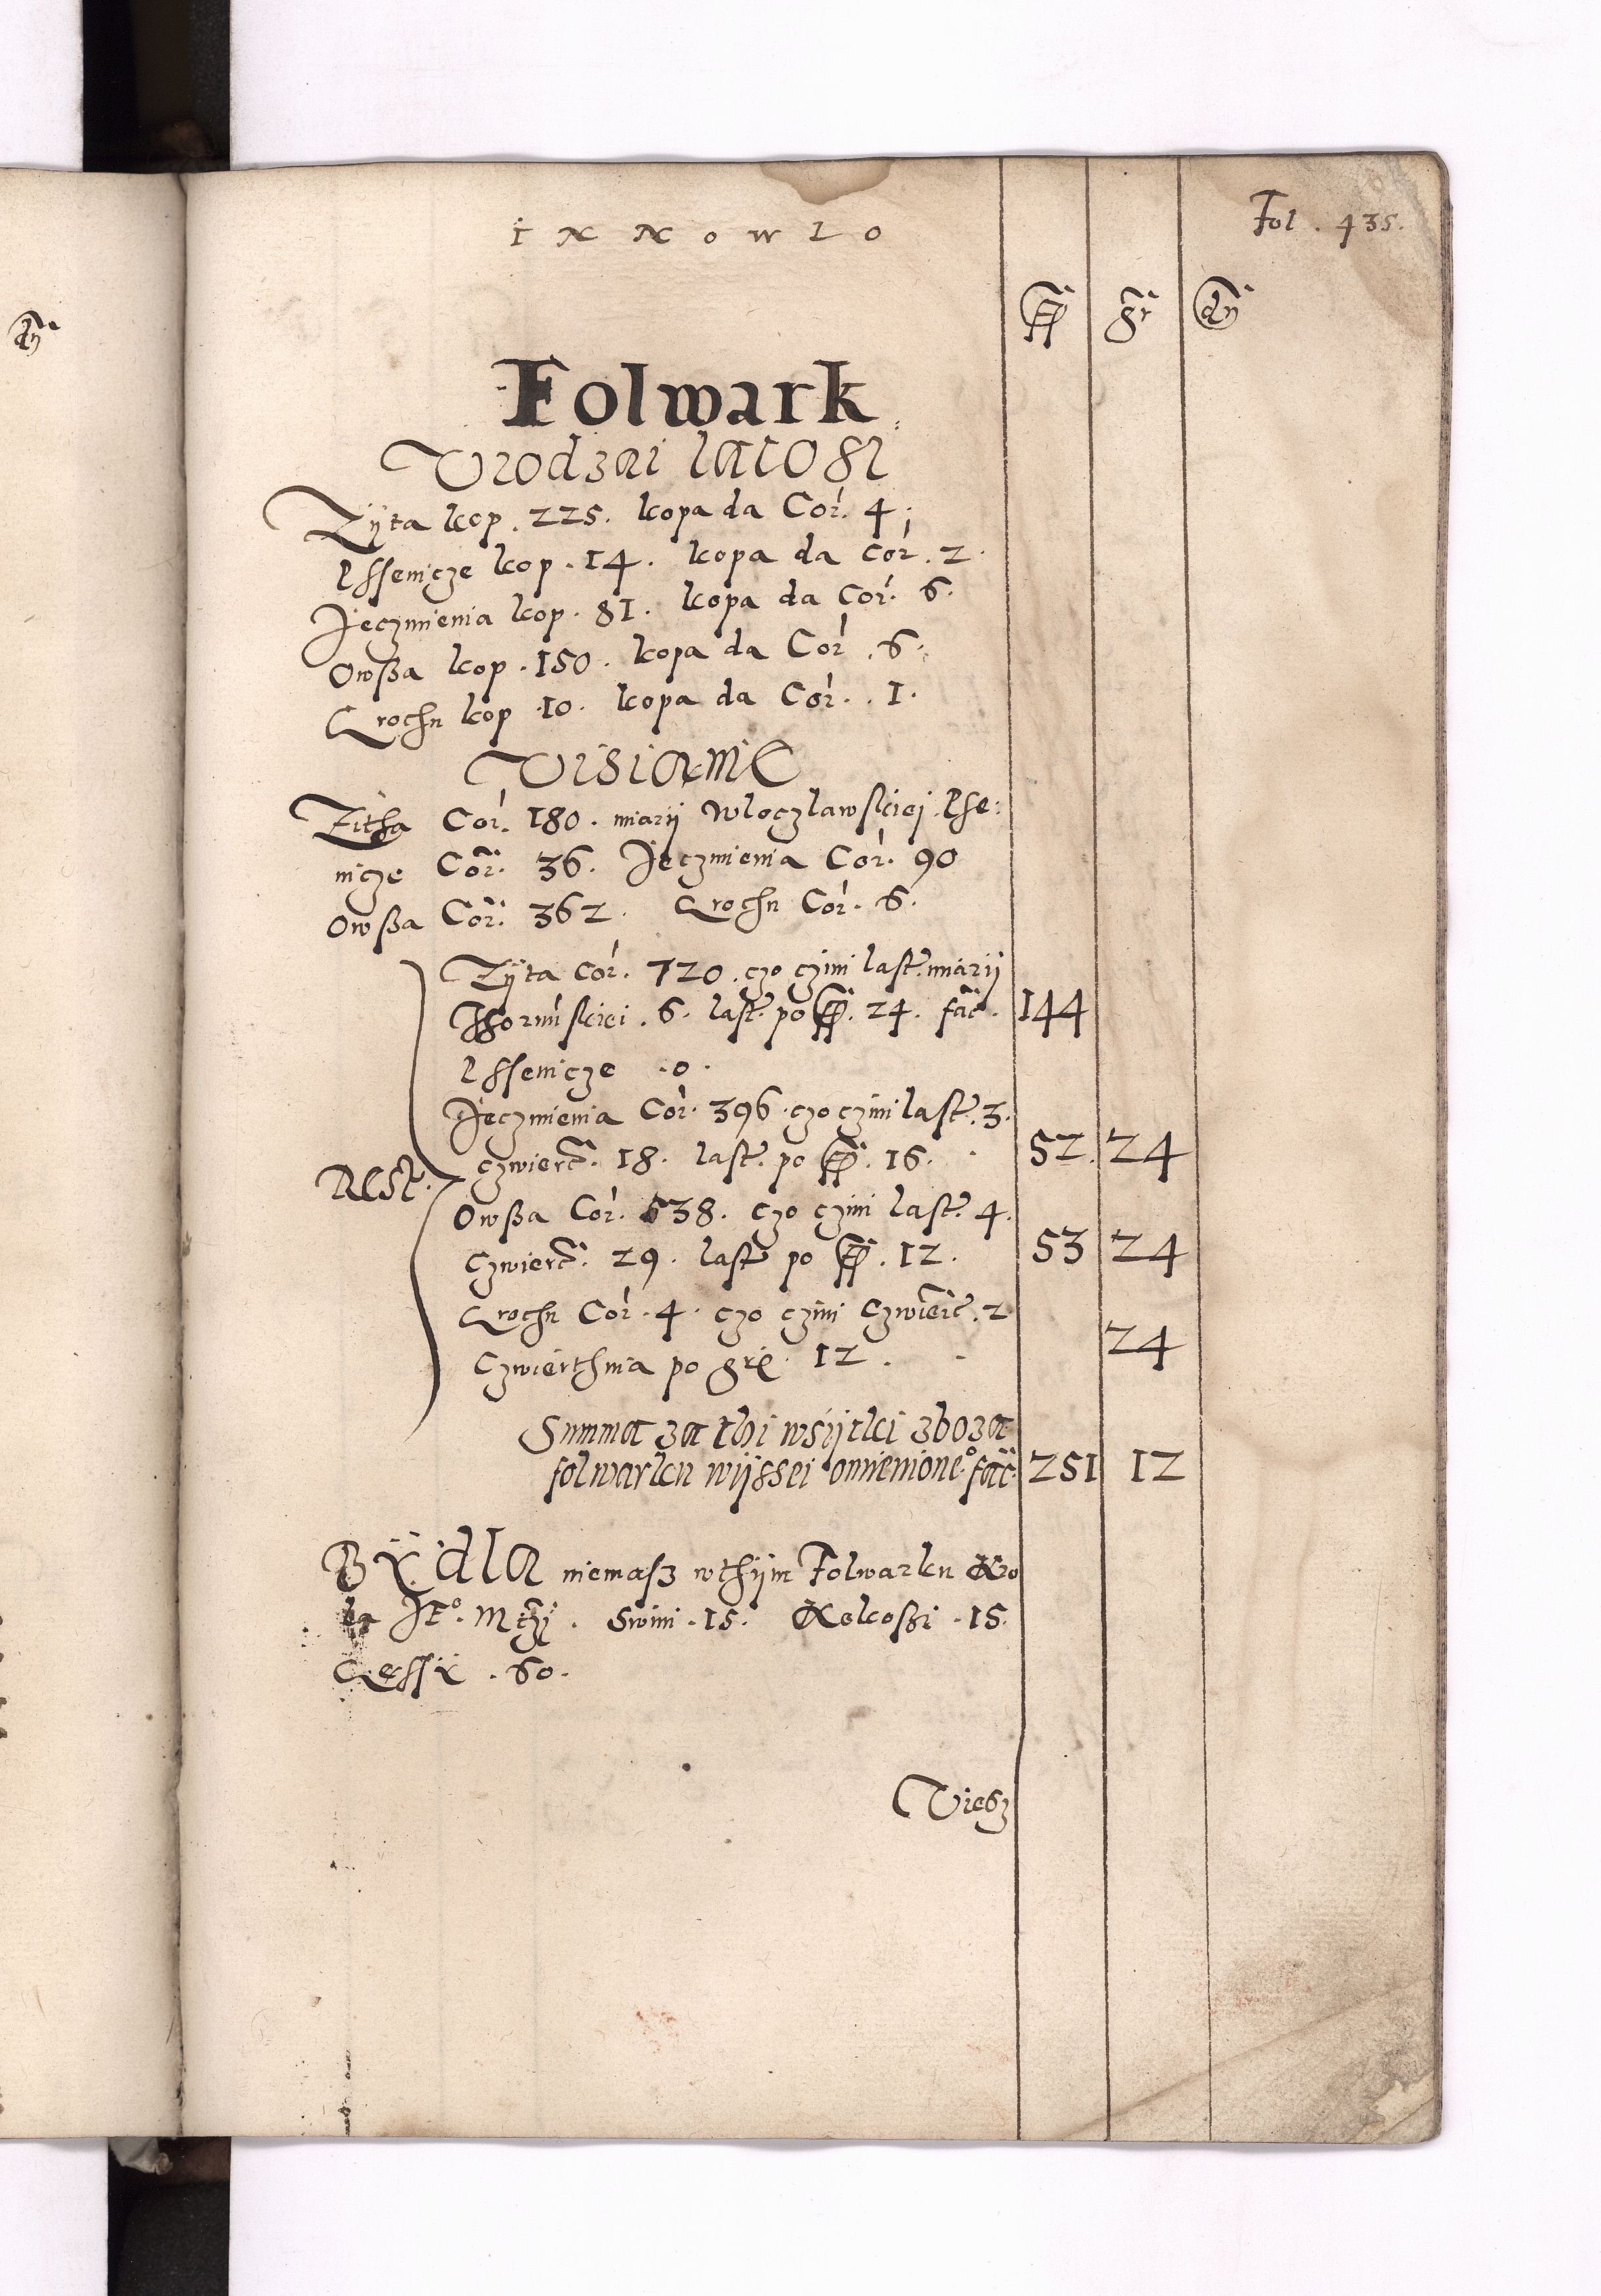 I N N O W L O
Fol. 435.
gr dń
Folwark
Vrodzai latosi
Zÿta kop. 225. kopa da Cor. 4.
Pssenicze kop. 14. kopa da Cor. 2.
Jęczmienia kop. 81. kopa da Cor. 6.
Owßa kop. 150. kopa da Cor. 6.
Grochu kop 10. kopa da Cor. 1.
Wisianie
Zitha Cor. 180. miarÿ Wloczlawskiej. Pse:
nicze Cor. 36. Jęczmienia Cor. 90
Owßa Cor. 362. Grochu Cor. 6.
Zÿta Cor. 720. czo czini last. miarÿ
Thorunskiei. 6. last. po fl. 24. fac. 144
Pssenicze .0.
Jęczmienia Cor. 396. czo czini last. 3.
Rest. czwiert. 18. last. po fl. 16. 52. 24
Owßa Cor. 538. czo czini last. 4.
Czwiert. 29. last po fl. 12. 53 24
Grochu Cor. 4. czo czini Czwiert. 2
Czwierthnia po gr 12. 24
Summa za thi wsÿtki zboza
folwarku wÿssei omienione° fac 251 12
BYdla niemasz wthÿm Folwarku Kro
la Je°. Mczi. Swini. 15. Kokoßi. 15.
Gęssy. 60.
Wiesz
dń